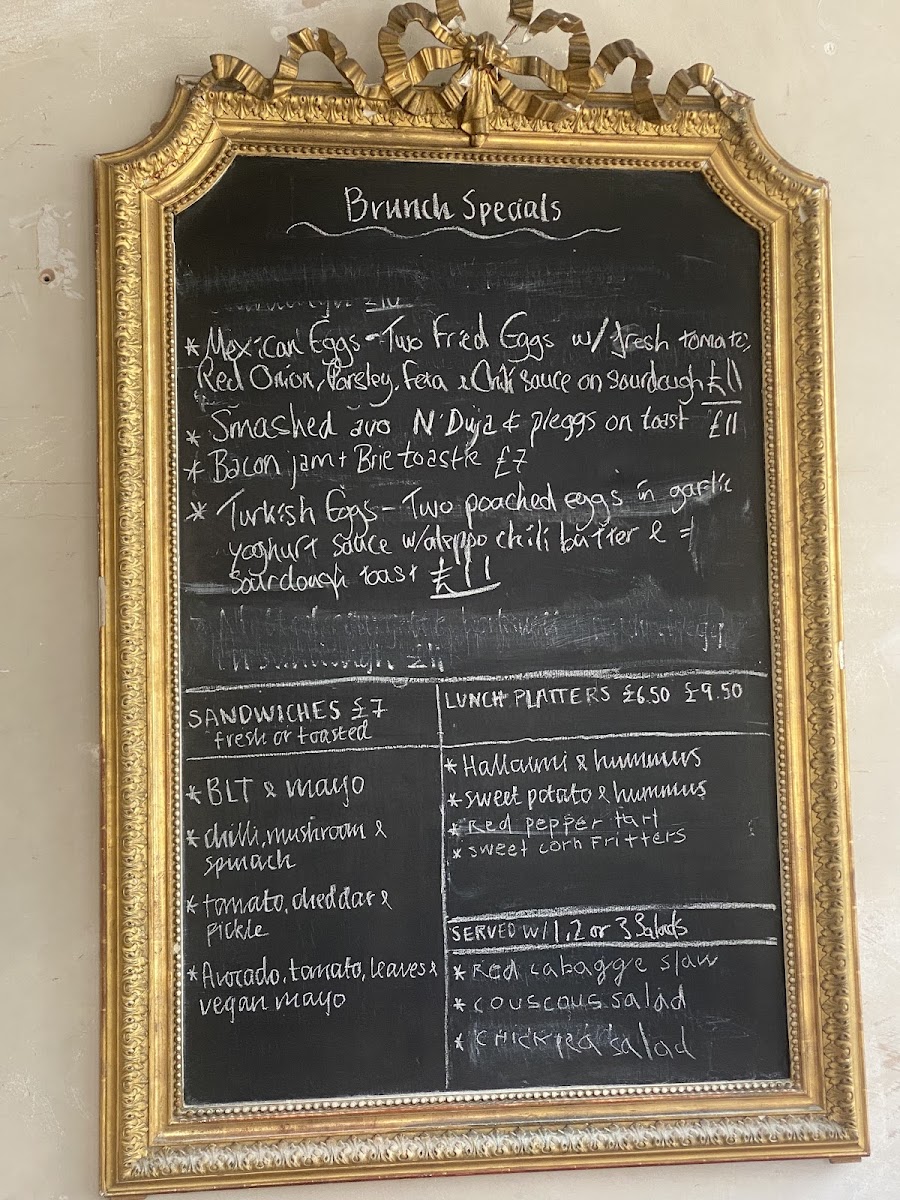 Brunch Specials
£10
* Mexican Eggs - Two Fried Eggs w/ fresh tomato,
Red Onion, Parsley, Feta & Chilli sauce on sourdough £11
* Smashed avo N'Duja & pleggs on toast £11
* Bacon jam + Brie toastie £7
* Turkish Eggs - Two poached eggs in garlic
yoghurt sauce w/aleppo chili butter &
sourdough toast £11
SANDWICHES £7
fresh or toasted
* BLT & mayo
* chilli, mushroom &
spinach
* tomato, cheddar &
Pickle
* Avocado, tomato, leaves &
vegan mayo
LUNCH PLATTERS £6.50 £9.50
* Halloumi & hummus
* sweet potato & hummus
* Red pepper tart
* sweet corn Fritters
SERVED W/ 1, 2 or 3 Salads
* Red cabagge slaw
* couscous salad
* CHICKPEA salad